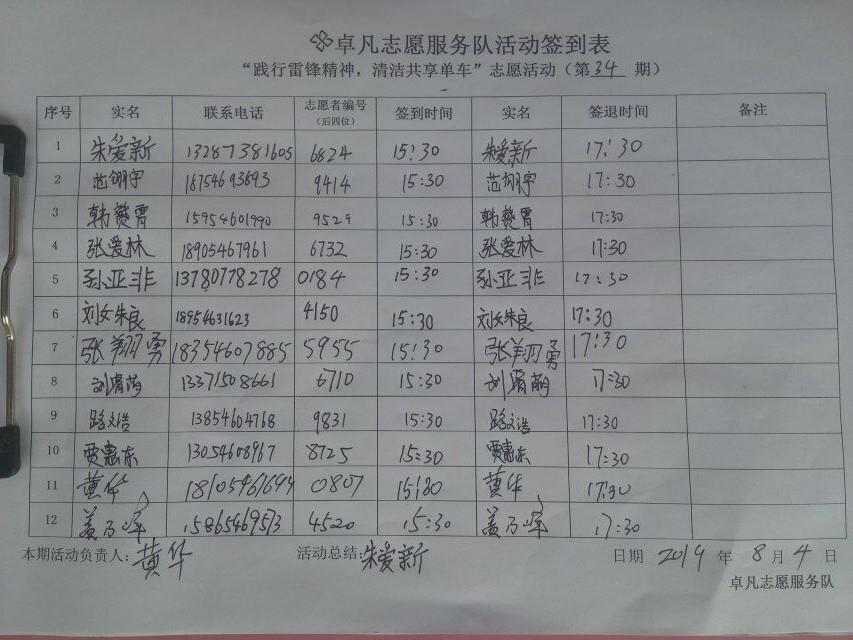 卓凡志愿服务队活动签到表
“践行雷锋精神，清洁共享单车”志愿活动（第34期）
序号 实名 联系电话 志愿者编号（后四位） 签到时间 实名 签退时间 备注
1 朱爱新 13287381605 6824 15:30 朱爱新 17:30
2 范翎宇 18754693693 9414 15:30 范翎宇 17:30
3 韩爱霄 15954601990 9529 15:30 韩爱霄 17:30
4 张爱林 18905467961 6732 15:30 张爱林 17:30
5 孙亚非 13780778278 0184 15:30 孙亚非 17:30
6 刘女朱良 18954631623 4150 15:30 刘女朱良 17:30
7 张翔勇 18354607885 5955 15:30 张翔勇 17:30
8 13371508661 6710 15:30 17:30
9 路文浩 13854604768 9831 15:30 路文浩 17:30
10 贾惠东 13054608967 8725 15:30 贾惠东 17:30
11 黄华 18105461694 0807 15:30 黄华 17:30
12 盖乃峰 15865469573 4520 15:30 盖乃峰 17:30
本期活动负责人：黄华 活动总结：朱爱新 日期 2019 年 8 月 4 日
卓凡志愿服务队